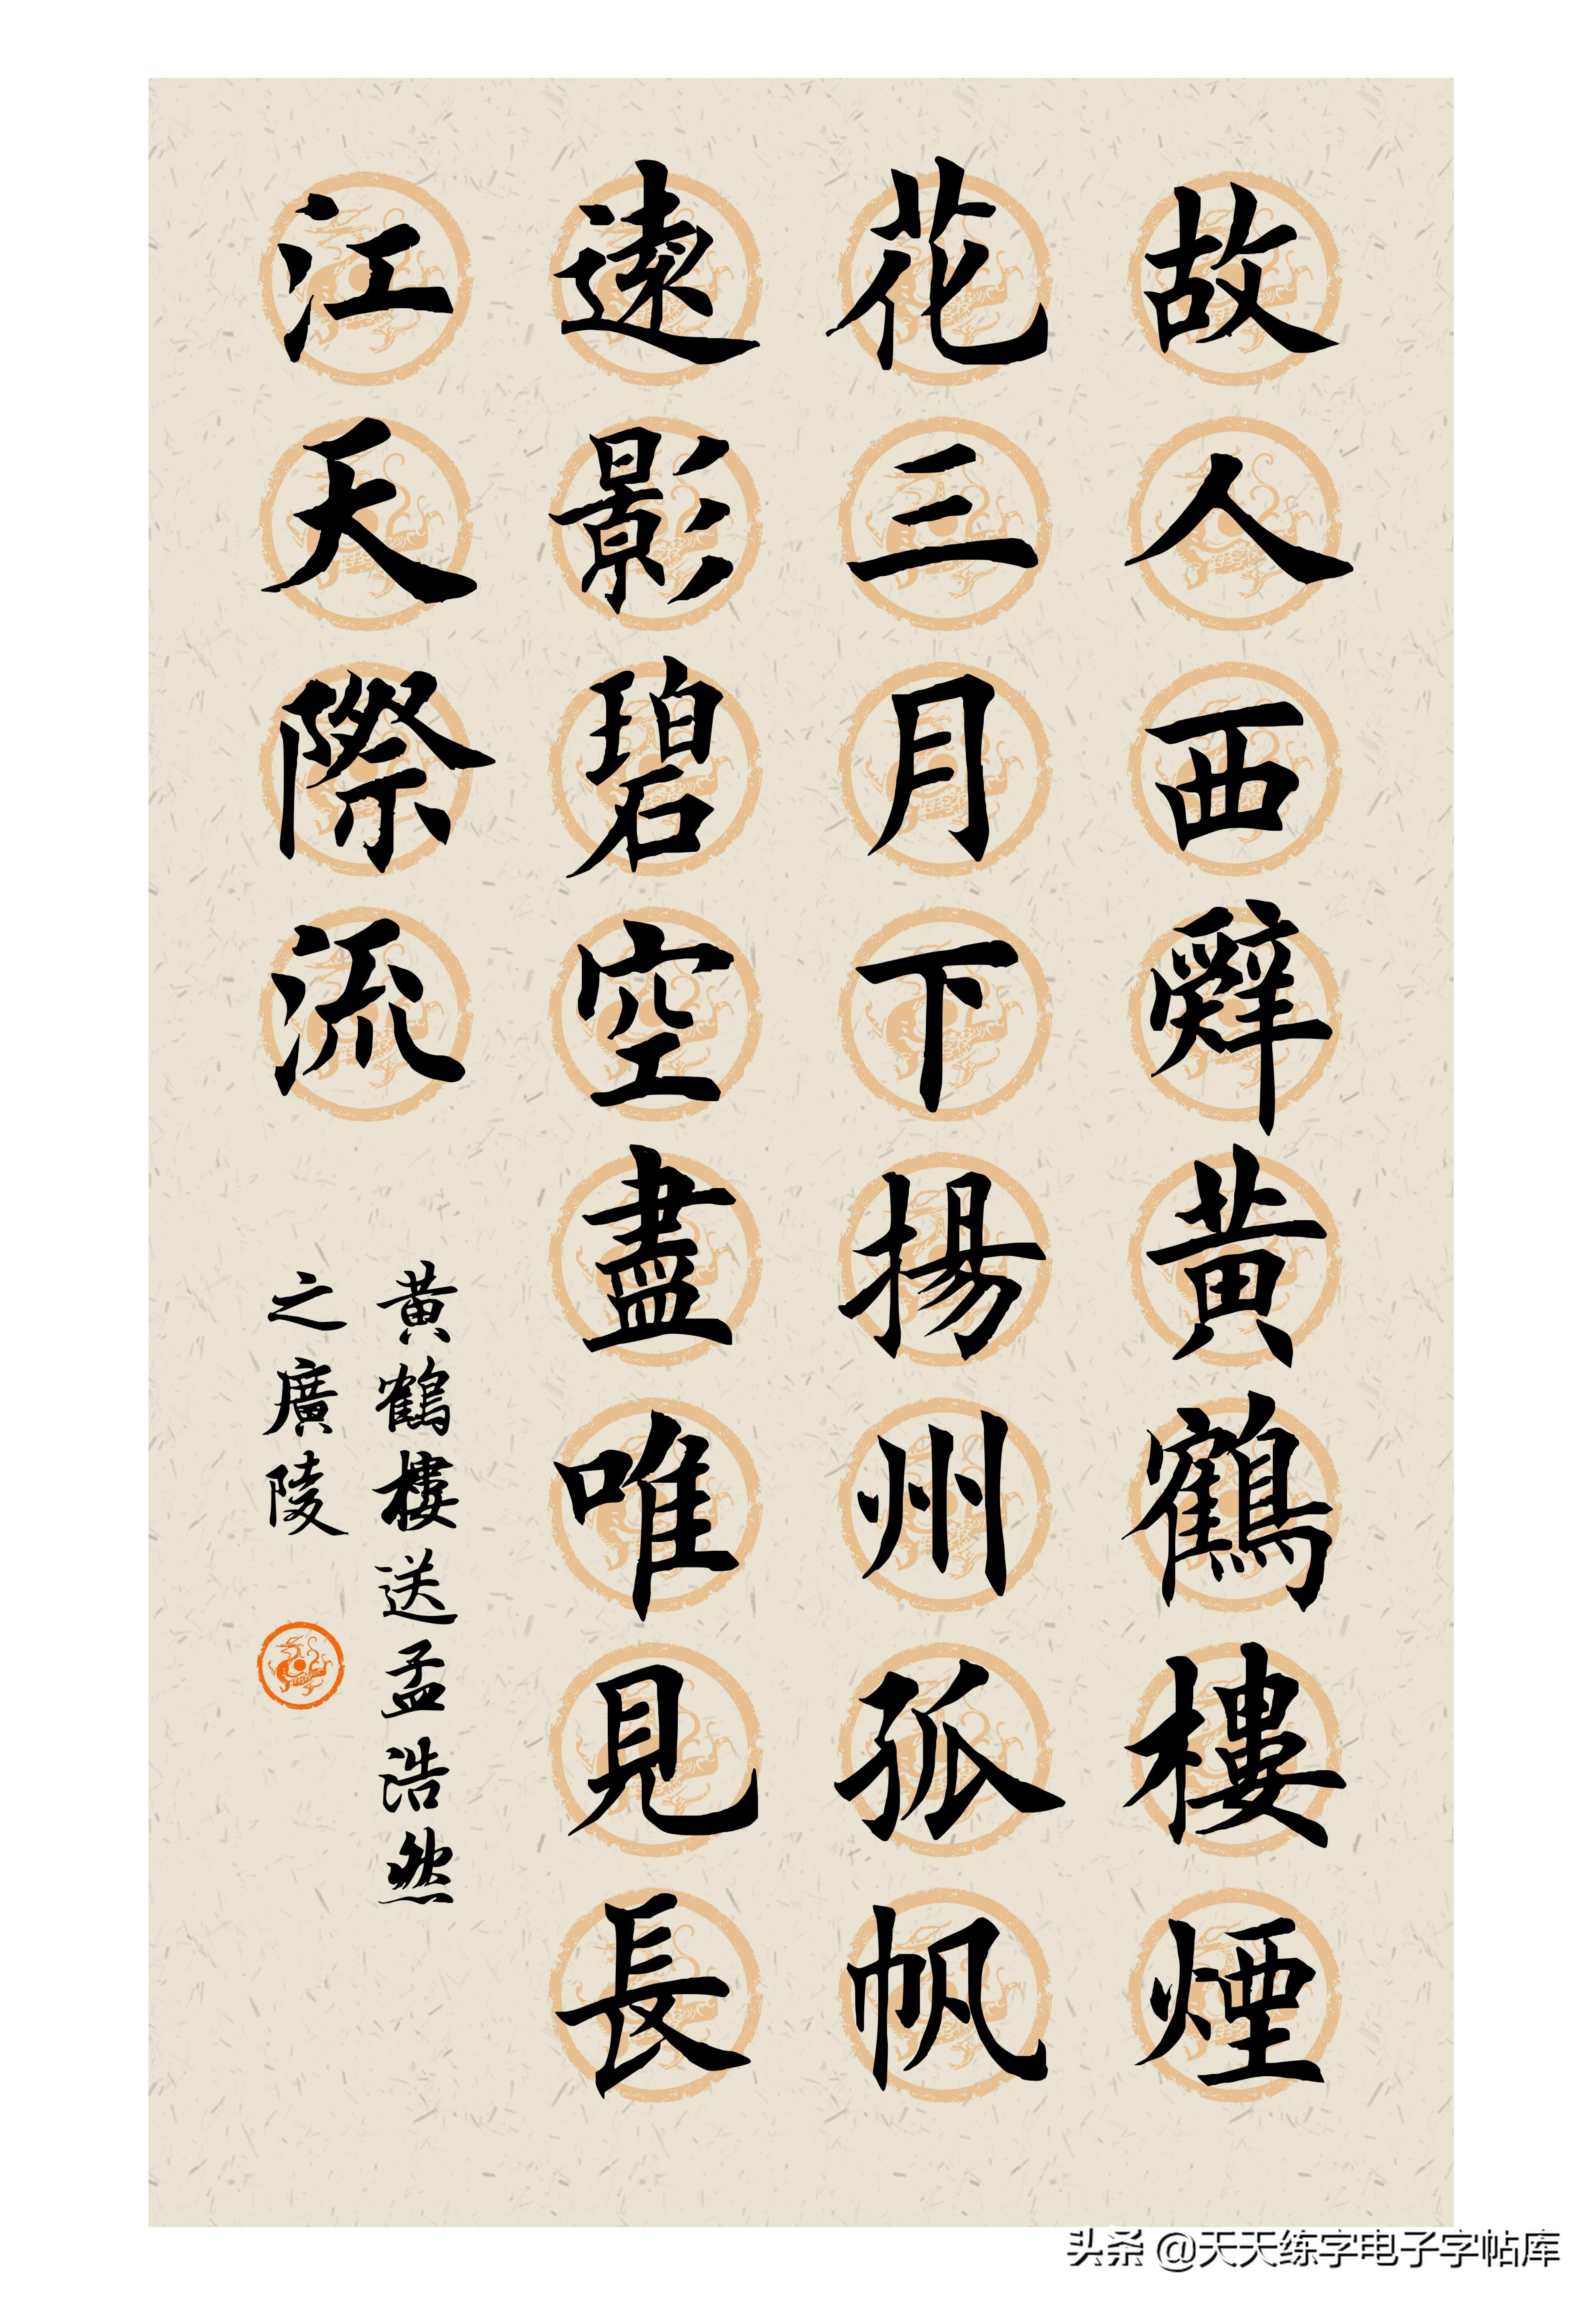 故人西辤黄鶴樓煙
花三月下揚州孤帆
遠影碧空盡唯見長
江天際流
黄鶴樓送孟浩然
之廣陵
头条 @天天练字电子字帖库